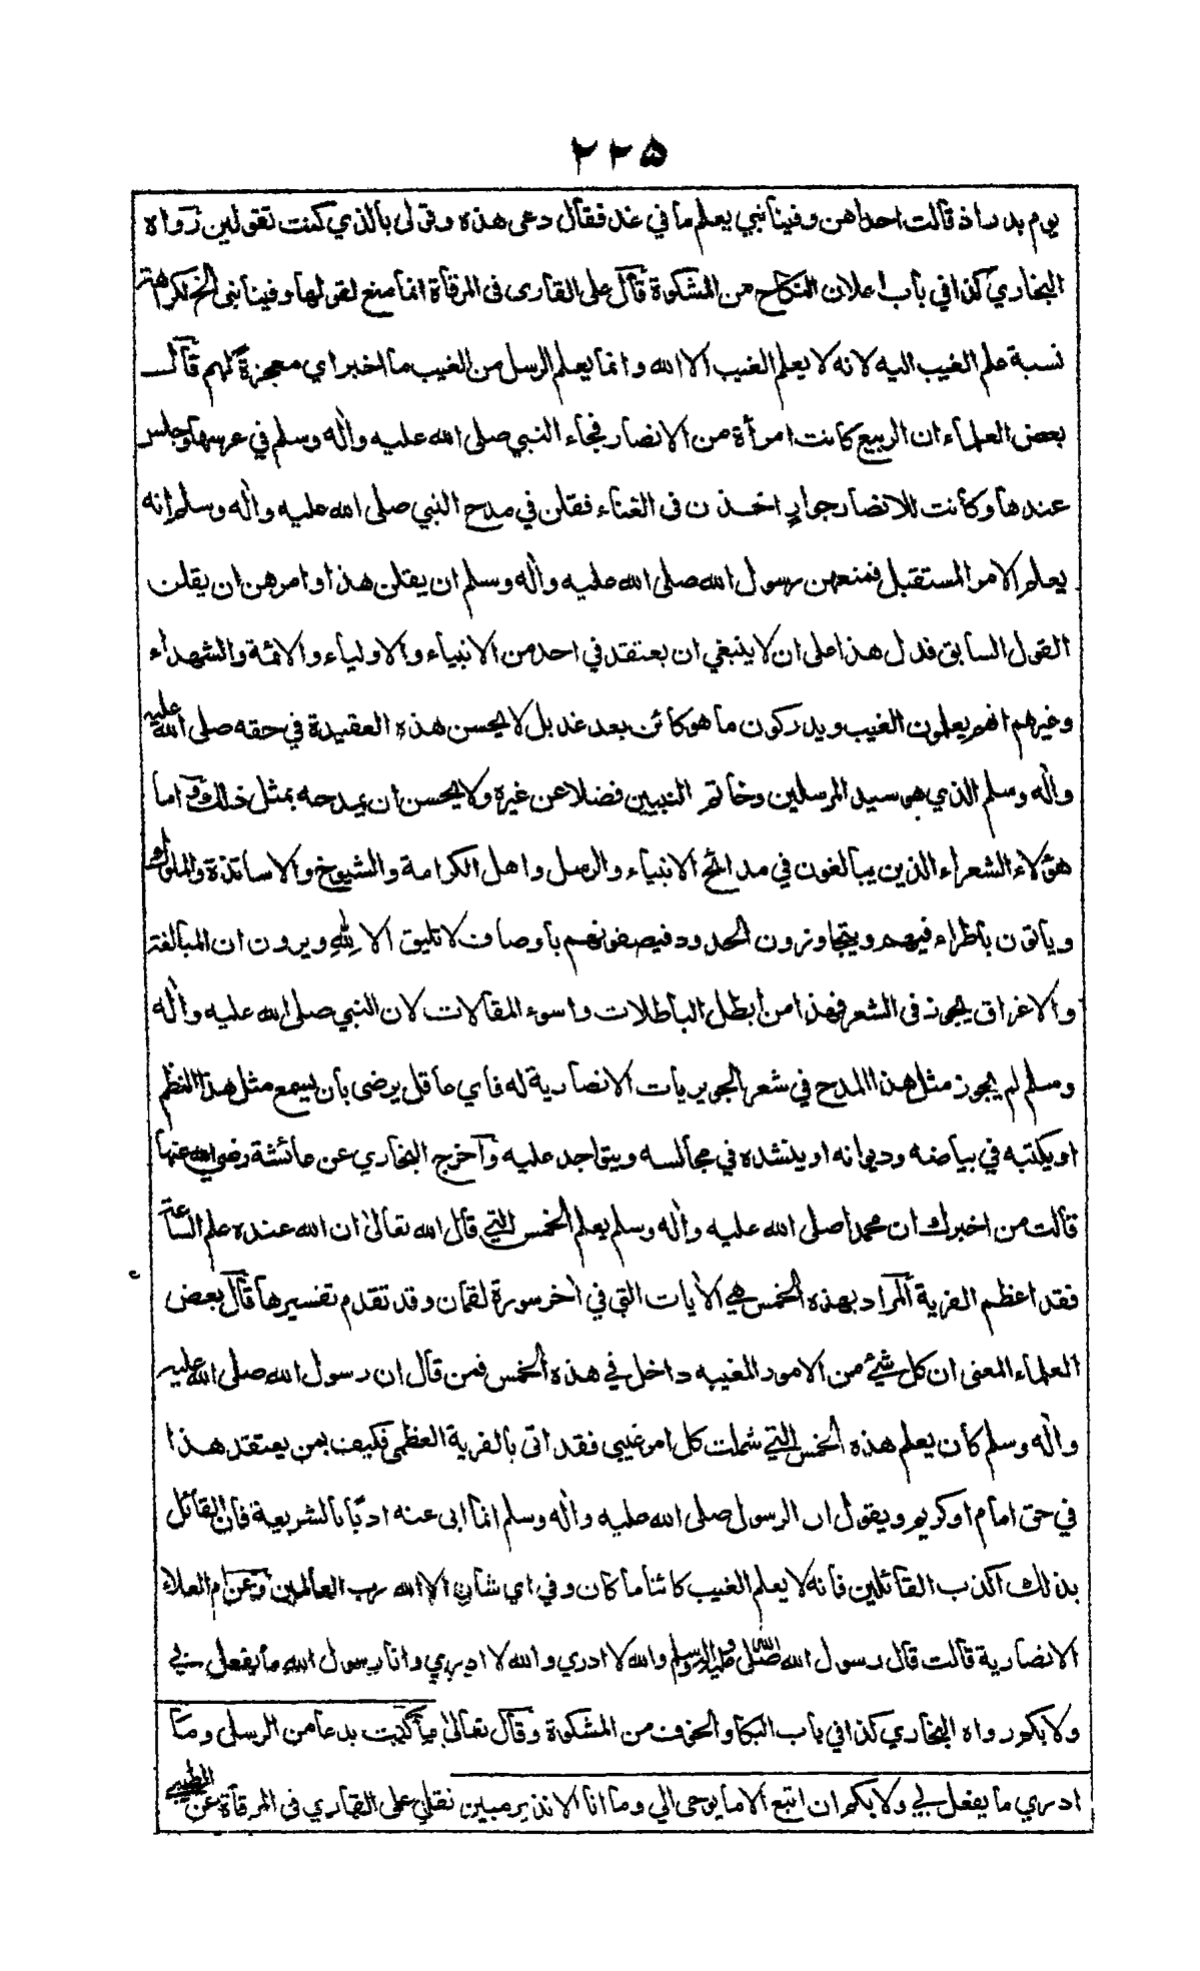 ۲۲۵
يوم بدر اذ قالت احداهن وفينا نبي يعلم ما في غد فقال دعى هذه وقولى بالذي كنت تقولين رواه
البخاري كذا في باب اعلان النكاح من المشكوة قال على القارى فى المرقاة انما منع لقولها وفينا نبى الخ لكراهة
نسبة علم الغيب اليه لانه لا يعلم الغيب الا الله وانما يعلم الرسل من الغيب ما اخبر اي معجزة لهم قال
بعض العلماء ان الربيع كانت امرأة من الانصار فجاء النبي صلى الله عليه واٰله وسلم في عرسها وجلس
عندها وكانت للانصار جوارٍ اخذن فى الغناء فقلن في مدح النبي صلى الله عليه واٰله وسلم انه
يعلم الامر المستقبل فمنعهن رسول الله صلى الله عليه واٰله وسلم ان يقلن هذا وامرهن ان يقلن
القول السابق فدل هذا على ان لا ينبغي ان يعتقد في احد من الانبياء والاولياء والائمة والشهداء
وغيرهم انهم يعلمون الغيب ويدركون ما هو كائن بعد غد بل لا يحسن هذه العقيدة في حقه صلى الله عليه
واٰله وسلم الذي هو سيد المرسلين وخاتم النبيين فضلا عن غيره ولا يحسن ان يمدحه بمثل ذلك واما
هؤلاء الشعراء الذين يبالغون في مدائح الانبياء والرسل واهل الكرامة والشيوخ والاساتذة والملوك
ويأتون باطراء فيهم ويتجاوزون الحدود فيصفونهم باوصاف لا تليق الا لِلّٰهِ ويرون ان المبالغة
والاغراق يجوز فى الشعر فهذا من ابطل الباطلات واسوء المقالات لان النبي صلى الله عليه واٰله
وسلم لم يجوز مثل هذا المدح في شعر الجويريات الانصارية له فاي عاقل يرضى بان يسمع مثل هذا النظم
او يكتبه في بياضه وديوانه او ينشده في مجالسه ويتواجد عليه واخرج البخاري عن عائشة رضي الله عنها
قالت من اخبرك ان محمدا صلى الله عليه واٰله وسلم يعلم الخمس التي قال الله تعالىٰ ان الله عنده علم الساعة
فقد اعظم الفرية المراد بهذه الخمس هي الاٰيات التي في اٰخر سورة لقمان وقد تقدم تفسيرها قال بعض
العلماء المعنى ان كل شيئ من الامور المغيبه داخل في هذه الخمس فمن قال ان رسول الله صلى الله عليه
واٰله وسلم كان يعلم هذه الخمس التي شملت كل امر غيبي فقد اتى بالفرية العظمى فكيف بمن يعتقد هذا
في حق امام او كريم ويقول ان الرسول صلى الله عليه واٰله وسلم انما ابى عنه ادبًا بالشريعة فان القائل
بذلك اكذب القائلين فانه لا يعلم الغيب كائنا ما كان وفي اي شان الا الله رب العالمين وعن ام العلاء
الانصارية قالت قال رسول الله صلى الله عليه واله وسلم والله لا ادري والله لا ادري وانا رسول الله ما يفعل بي
ولا بكم رواه البخاري كذا في باب البكاء والخوف من المشكوة وقال تعالىٰ ما كنت بدعا من الرسل وما
ادري ما يفعل بي ولا بكم ان اتبع الا ما يوحى الي وما انا الا نذير مبين نقل علي القاري فى المرقاة عن الطيبي